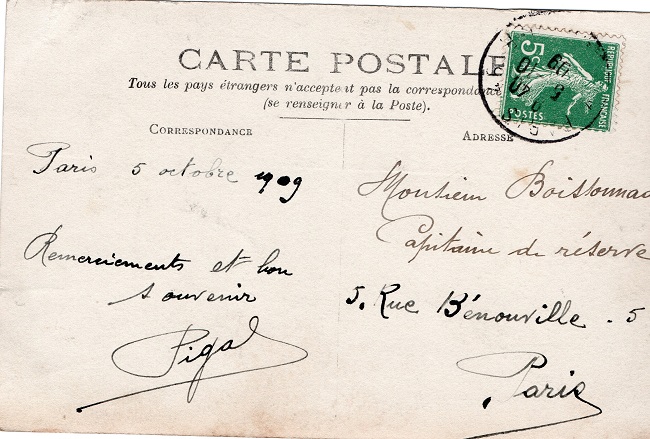 CARTE POSTALE
Tous les pays étrangers n'acceptent pas la correspondance
(se renseigner à la Poste).
CORRESPONDANCE
ADRESSE
5c
REPUBLIQUE FRANÇAISE
POSTES
Paris 5 octobre 1909
Remerciements et bon
souvenir
Pigal
Monsieur Boissonnad
Capitaine de réserve
5. Rue Bénouville - 5
Paris